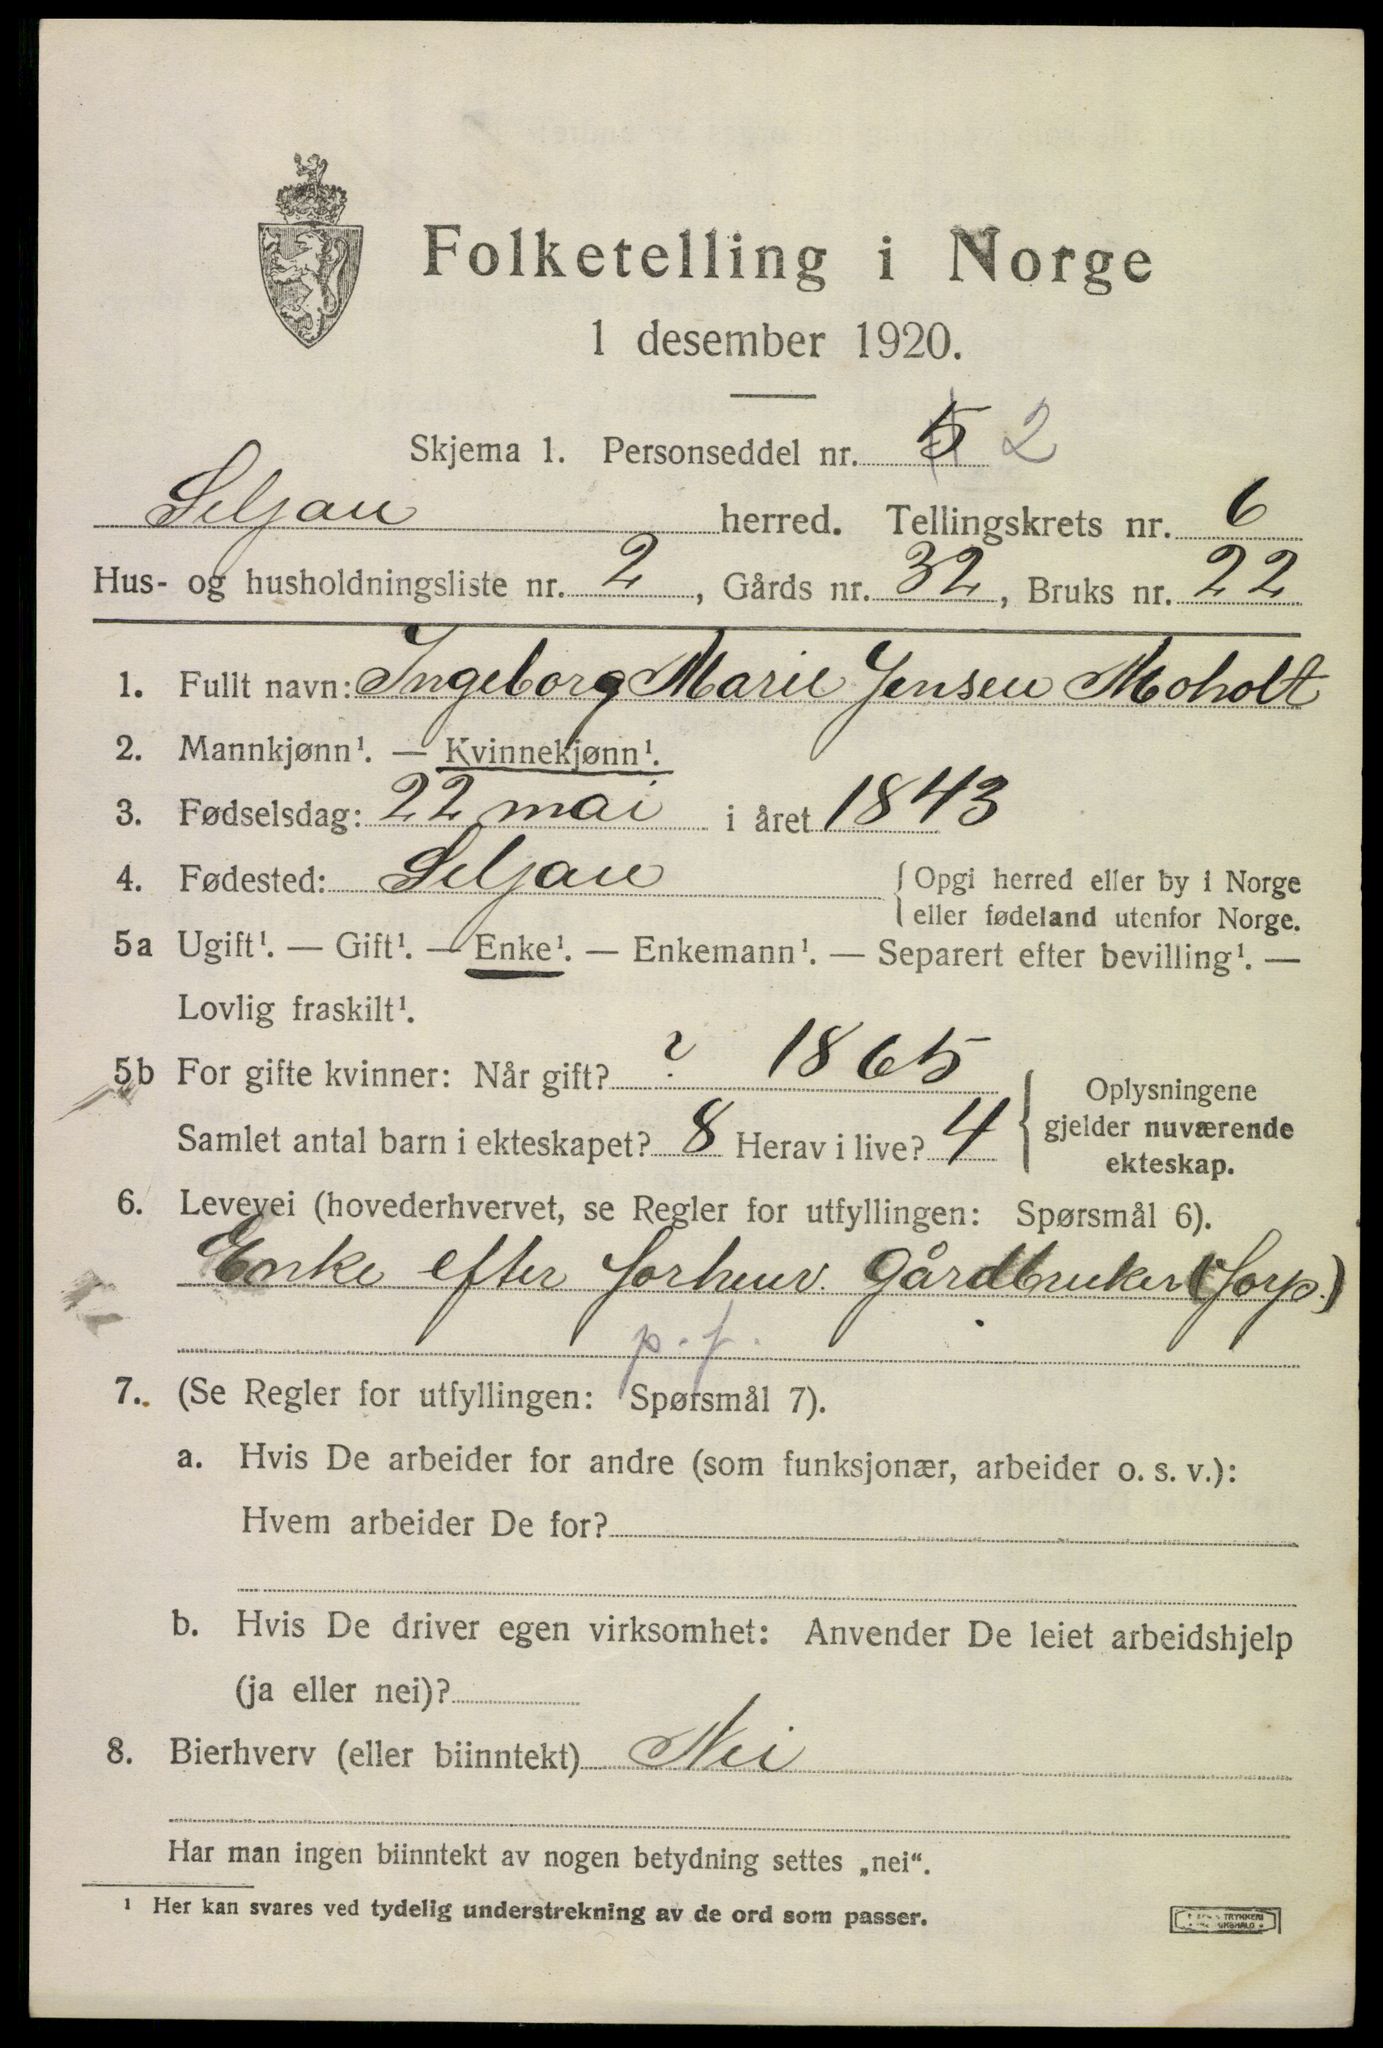 Folketelling i Norge
1 desember 1920.
Skjema 1. Personseddel nr. 5 2
Seljau herred. Tellingskrets nr. 6
Hus- og husholdningsliste nr. 2, Gårds nr. 32, Bruks nr. 22
1. Fullt navn: Ingeborg Marie Jensen Moholt
2. Mannkjønn¹. — Kvinnekjønn¹.
3. Fødselsdag: 22 mai i året 1843
4. Fødested: Seljau { Opgi herred eller by i Norge
eller fødeland utenfor Norge.
5a Ugift¹. — Gift¹. — Enke¹. — Enkemann¹. — Separert efter bevilling¹. —
Lovlig fraskilt¹.
5b For gifte kvinner: Når gift? ? 1865
Samlet antal barn i ekteskapet? 8 Herav i live? 4
Oplysningene
gjelder nuværende
ekteskap.
6. Levevei (hovederhvervet, se Regler for utfyllingen: Spørsmål 6).
Enke efter forhenv. Gårdbruker (forp.)
p.f.
7. (Se Regler for utfyllingen: Spørsmål 7).
a. Hvis De arbeider for andre (som funksjonær, arbeider o. s. v.):
Hvem arbeider De for?
b. Hvis De driver egen virksomhet: Anvender De leiet arbeidshjelp
(ja eller nei)?
8. Bierhverv (eller biinntekt) Nei
Har man ingen biinntekt av nogen betydning settes „nei“.
¹ Her kan svares ved tydelig understrekning av de ord som passer.